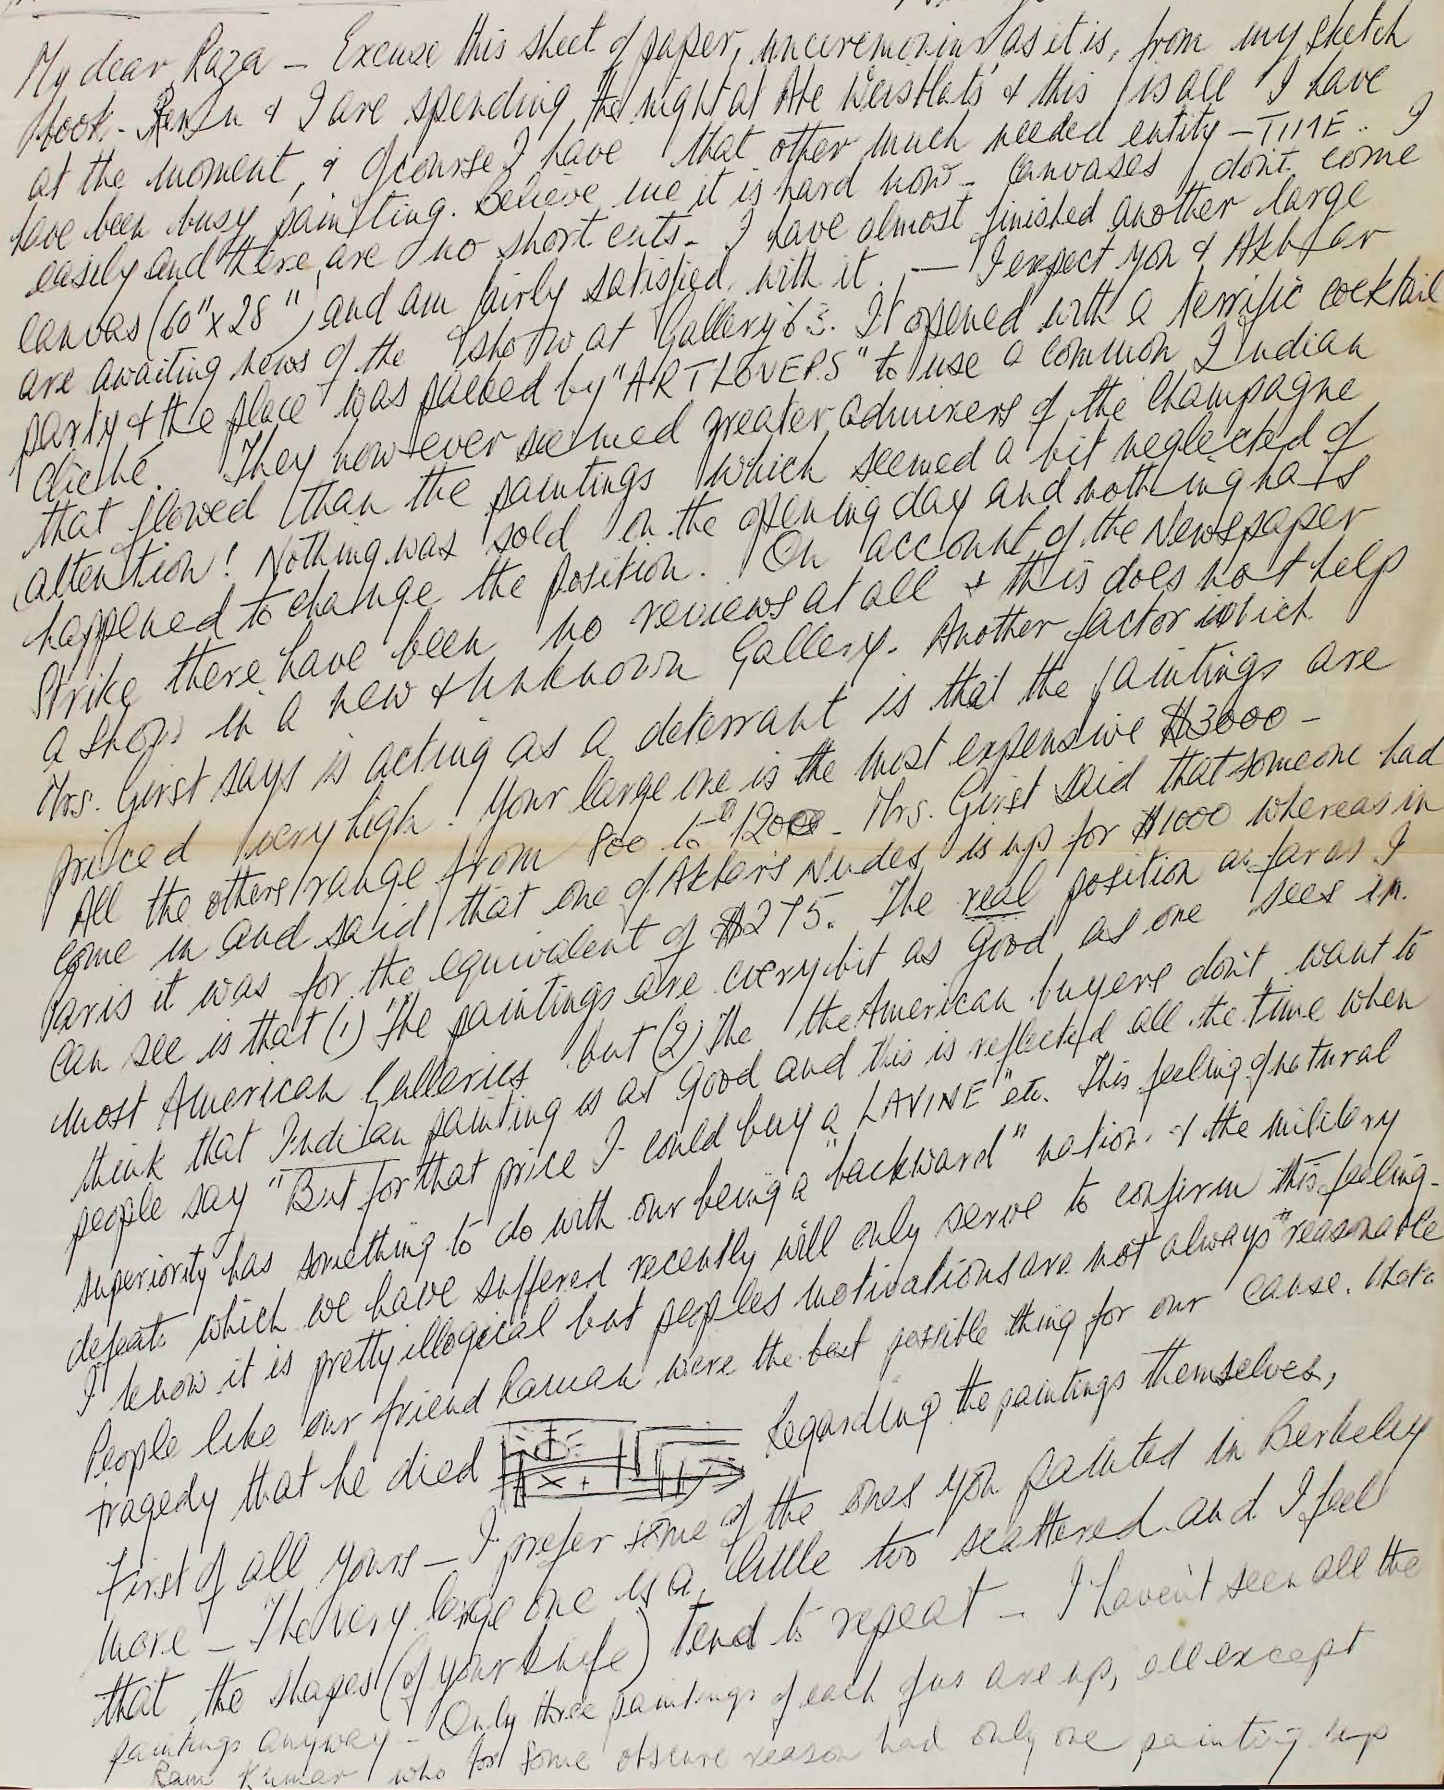 My dear Raza – Excuse this sheet of paper, unceremonious as it is, from my sketch
book – Renu & I are spending the night at the & this is all I have
at the moment, & of course I have that other much needed entity – TIME. I
have been busy painting. Believe me it is hard now – canvases don't come
easily and there are no short cuts – I have almost finished another large
canvas (60" x 28") and am fairly satisfied with it. — I expect you & Akbar
are awaiting news of the show at Gallery 63. It opened with a terrific cocktail
party & the place was packed by "ARTLOVERS" to use a common Indian
cliché. They however seemed greater admirers of the Champagne
that flowed than the paintings which seemed a bit neglected of
attention! Nothing was sold on the opening day and nothing has
happened to change the position. On account of the Newspaper
Strike there have been no reviews at all & this does not help
a show in a new & unknown Gallery. Another factor which
Mrs. Girst says is acting as a deterrant is that the paintings are
priced very high! Your large one is the most expensive $3000 –
All the others range from 800 to 1200 – Mrs. Girst said that someone had
come in and said that one of Akbar's Nudes is up for $1000 whereas in
Paris it was for the equivalent of $275. The real position as far as I
can see is that (1) The paintings are every bit as good as one sees in
most American Galleries but (2) The the American buyers don't want to
think that Indian painting is as good and this is reflected all the time when
people say "But for that price I could buy a LAVINE" etc. This feeling of natural
superiority has something to do with our being a "backward" nation & the military
defeats which we have suffered recently will only serve to confirm this feeling –
I know it is pretty illogical but peoples motivations are not always "reasonable
People like our friend Raman were the best possible thing for our cause. What a
tragedy that he died Regarding the paintings themselves,
First of all yours – I prefer some of the ones you painted in Berkeley
more – The very large one is a little too scattered and I feel
that the shapes (of your knife) tend to repeat – I haven't seen all the
paintings anyway – Only three paintings of each of us are up, all except
Ram Kumar who for some obscure reason had only one painting up